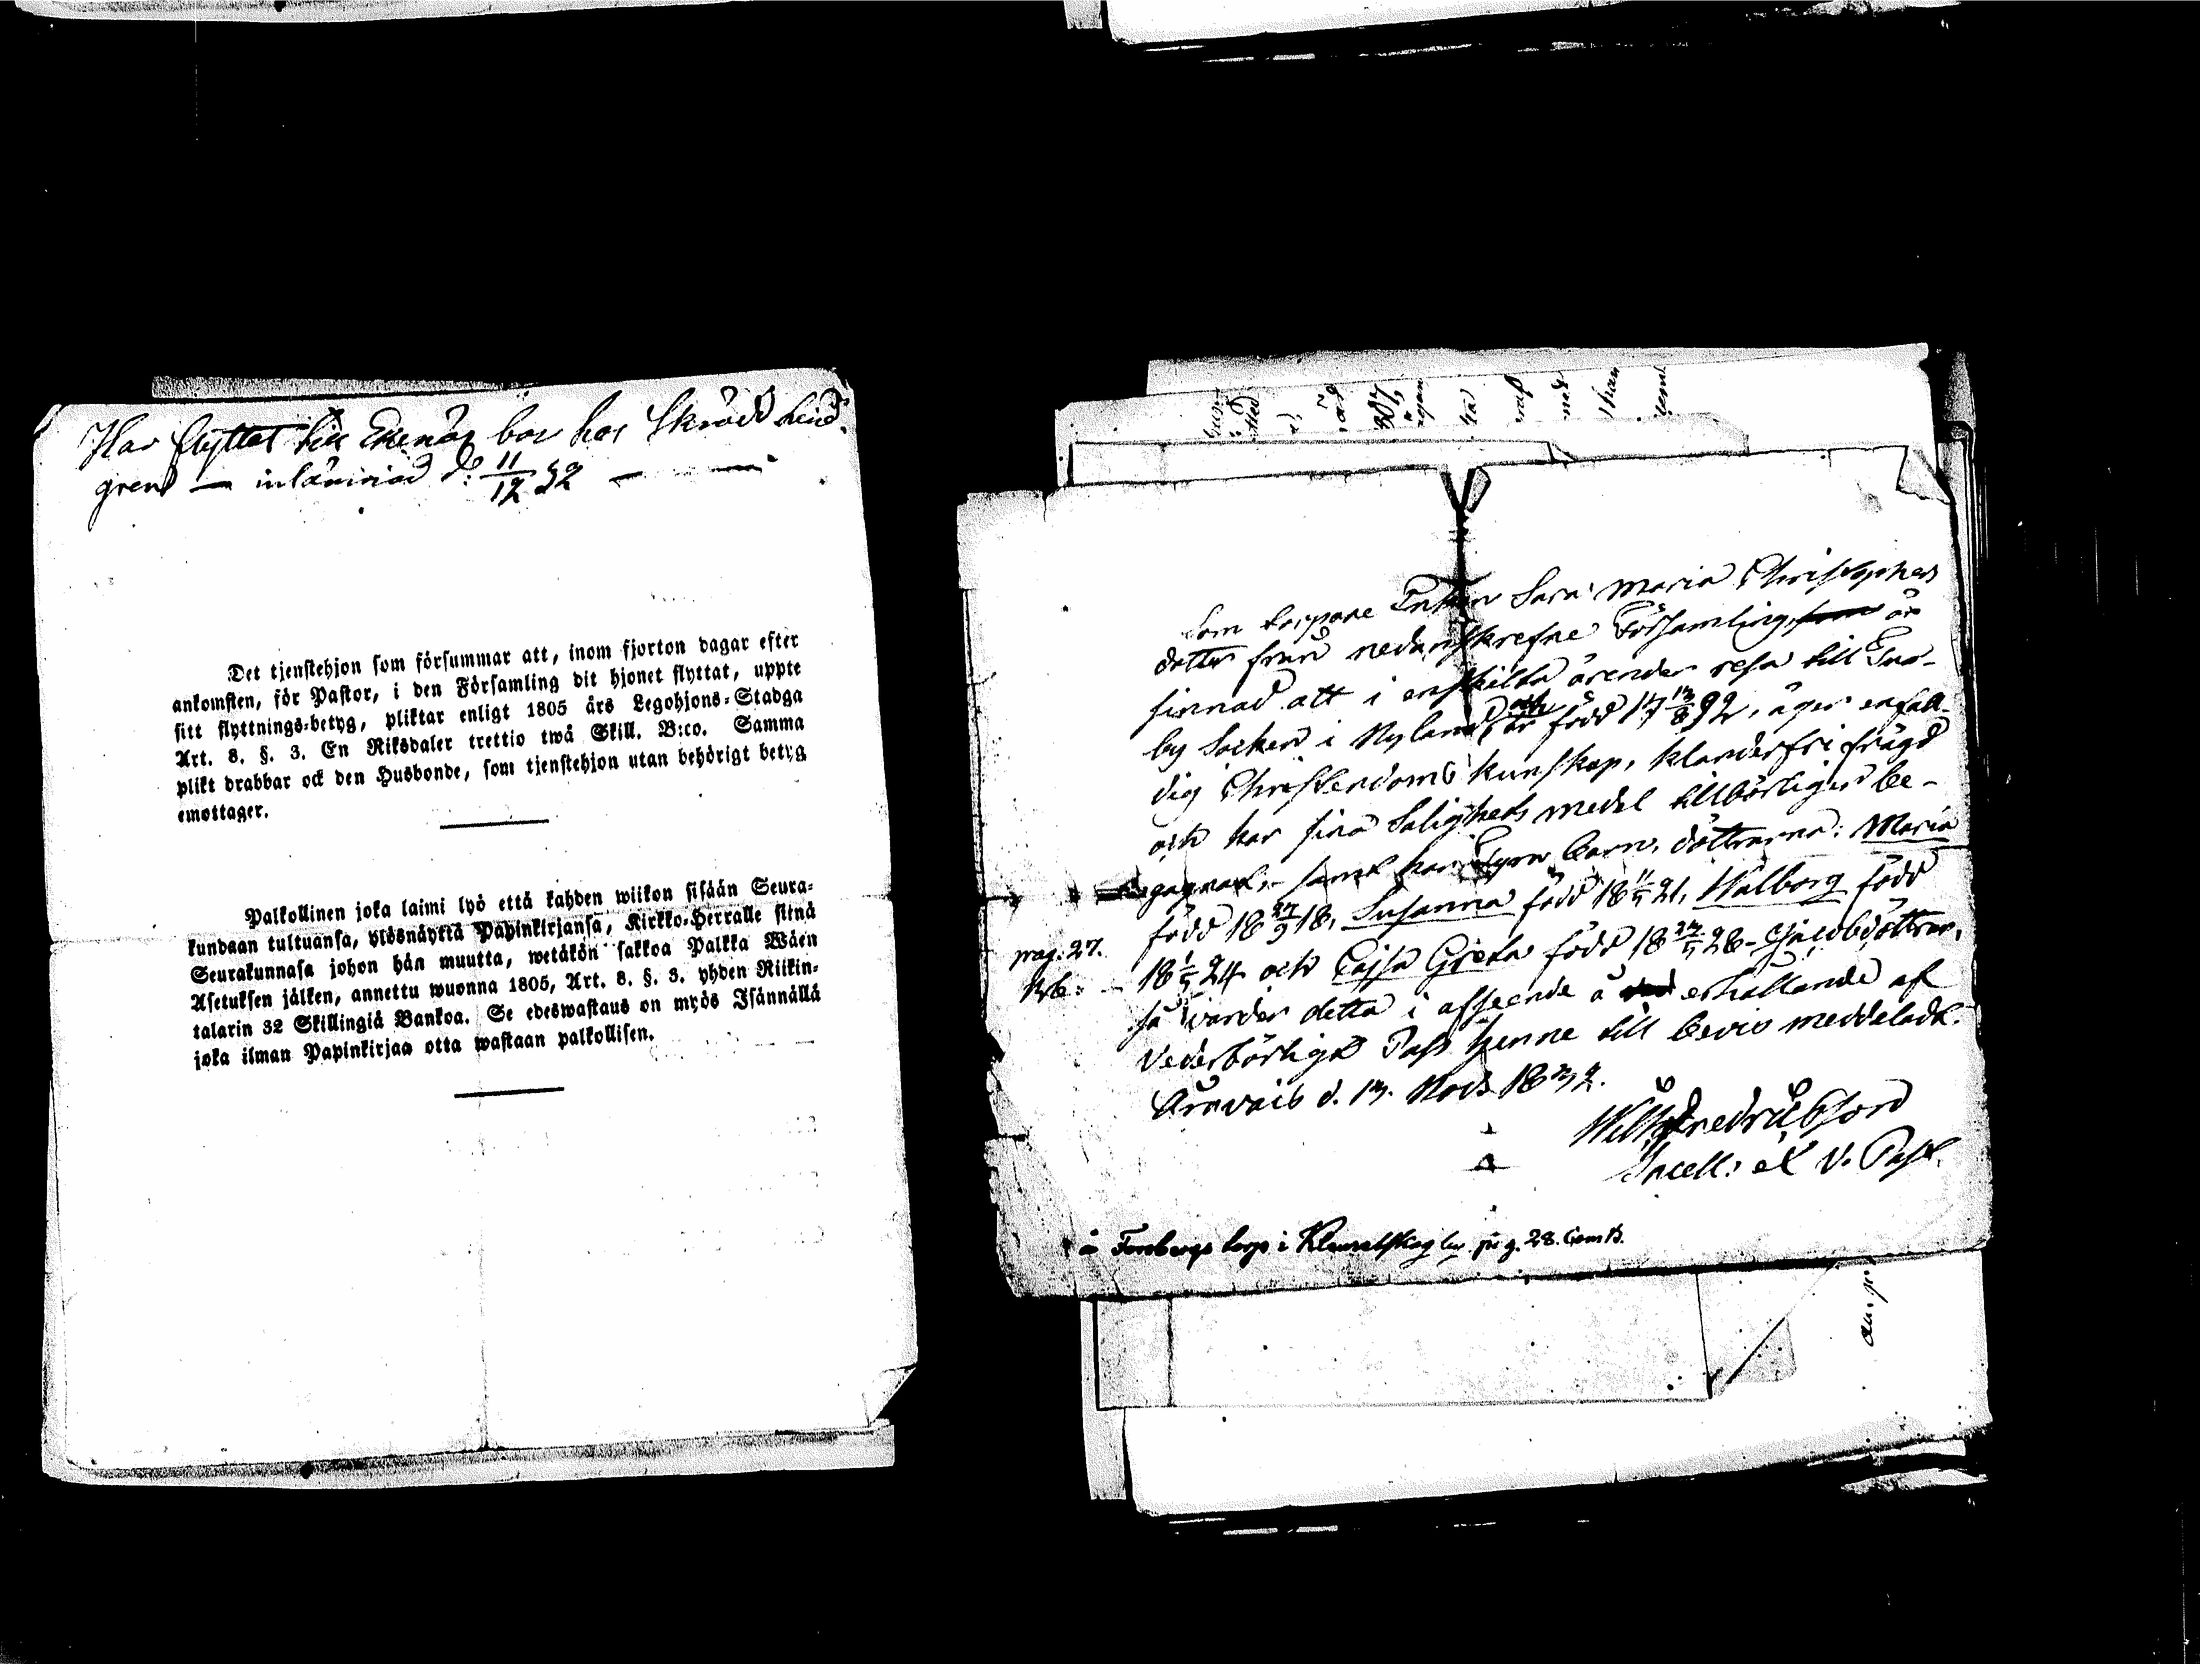 Har flyttat till Ekenäs bor hos Skrädd. Lind-
gren — inlämnad d: 11/12 32 —
Det tjenstehjon som försummar att, inom fjorton dagar efter
ankomsten, för Pastor, i den Församling dit hjonet flyttat, uppte
sitt flyttnings-betyg, pliktar enligt 1805 års Legohjons-Stadga
Art. 8. §. 3. En Riksdaler trettio twå Skill. B:co. Samma
plikt drabbar ock den Husbonde, som tjenstehjon utan behörigt betyg
emottager.
Palkollinen joka laimi lyö että kahden wiikon sisään Seura-
kundaan tultuansa, ylösnäyttä Papinkirjansa, Kirkko-Herralle siinä
Seurakunnasa johon hän muutta, wetäkön sakkoa Palkka Wäen
Asetuksen jälken, annettu wuonna 1805, Art. 8. §. 3. yhden Riikin-
talarin 32 Skillingiä Bankoa. Se edeswastaus on myös Isännällä
joka ilman Papinkirjaa otta wastaan palkollisen.
Som torpare Enkan Sara Maria Christophers
dotter från nedanskrefne Församling är
sinnad att i enskilda ärender resa till
by Socken i Nyland, och är född 17 13/8 92, äger enfal-
dig Christendoms kunskap, klanderfri frägd
och har sina Salighets medel tillbörligen be-
gagnat, samt har Fyra barn, döttrarna: Maria
född 18 27/9 18, Susanna född 18 11/5 21, Walborg född
18 1/5 24 och Cajsa Greta född 18 23/5 28 - Jacobsdöttrar,
pag. 27.
så varder detta i afseende å erhållande af
Vederbörligt Pass henne till bevis meddeladt.
Oravais d. 13. Nov. 1832.
Wilh Fredricsson
Sacell: et V. Past.
å Forsbergs torp i Kimoskog by pag. 28.